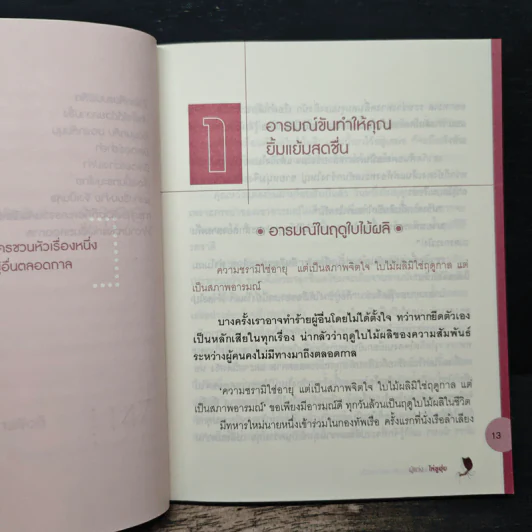 ครชวนหัวเรื่องหนึ่ง
ู้อื่นตลอดกาล
1
อารมณ์ขันทำให้คุณ
ยิ้มแย้มสดชื่น
อารมณ์ในฤดูใบไม้ผลิ
ความชรามิใช่อายุ แต่เป็นสภาพจิตใจ ใบไม้ผลิมิใช่ฤดูกาล แต่
เป็นสภาพอารมณ์
บางครั้งเราอาจทำร้ายผู้อื่นโดยไม่ได้ตั้งใจ ทว่าหากยึดตัวเอง
เป็นหลักเสียในทุกเรื่อง น่ากลัวว่าฤดูใบไม้ผลิของความสัมพันธ์
ระหว่างผู้คนคงไม่มีทางมาถึงตลอดกาล
'ความชรามิใช่อายุ แต่เป็นสภาพจิตใจ ใบไม้ผลิมิใช่ฤดูกาล แต่
เป็นสภาพอารมณ์' ขอเพียงมีอารมณ์ดี ทุกวันล้วนเป็นฤดูใบไม้ผลิในชีวิต
มีทหารใหม่นายหนึ่งเข้าร่วมในกองทัพเรือ ครั้งแรกที่นั่งเรือลำเลียง
13